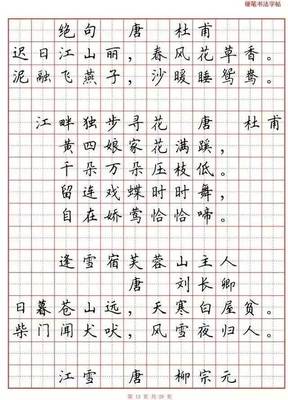 硬笔书法字帖
绝句 唐 杜甫
迟日江山丽，春风花草香。
泥融飞燕子，沙暖睡鸳鸯。
江畔独步寻花 唐 杜甫
黄四娘家花满蹊，
千朵万朵压枝低。
留连戏蝶时时舞，
自在娇莺恰恰啼。
逢雪宿芙蓉山主人
唐 刘长卿
日暮苍山远，天寒白屋贫。
柴门闻犬吠，风雪夜归人。
江雪 唐 柳宗元